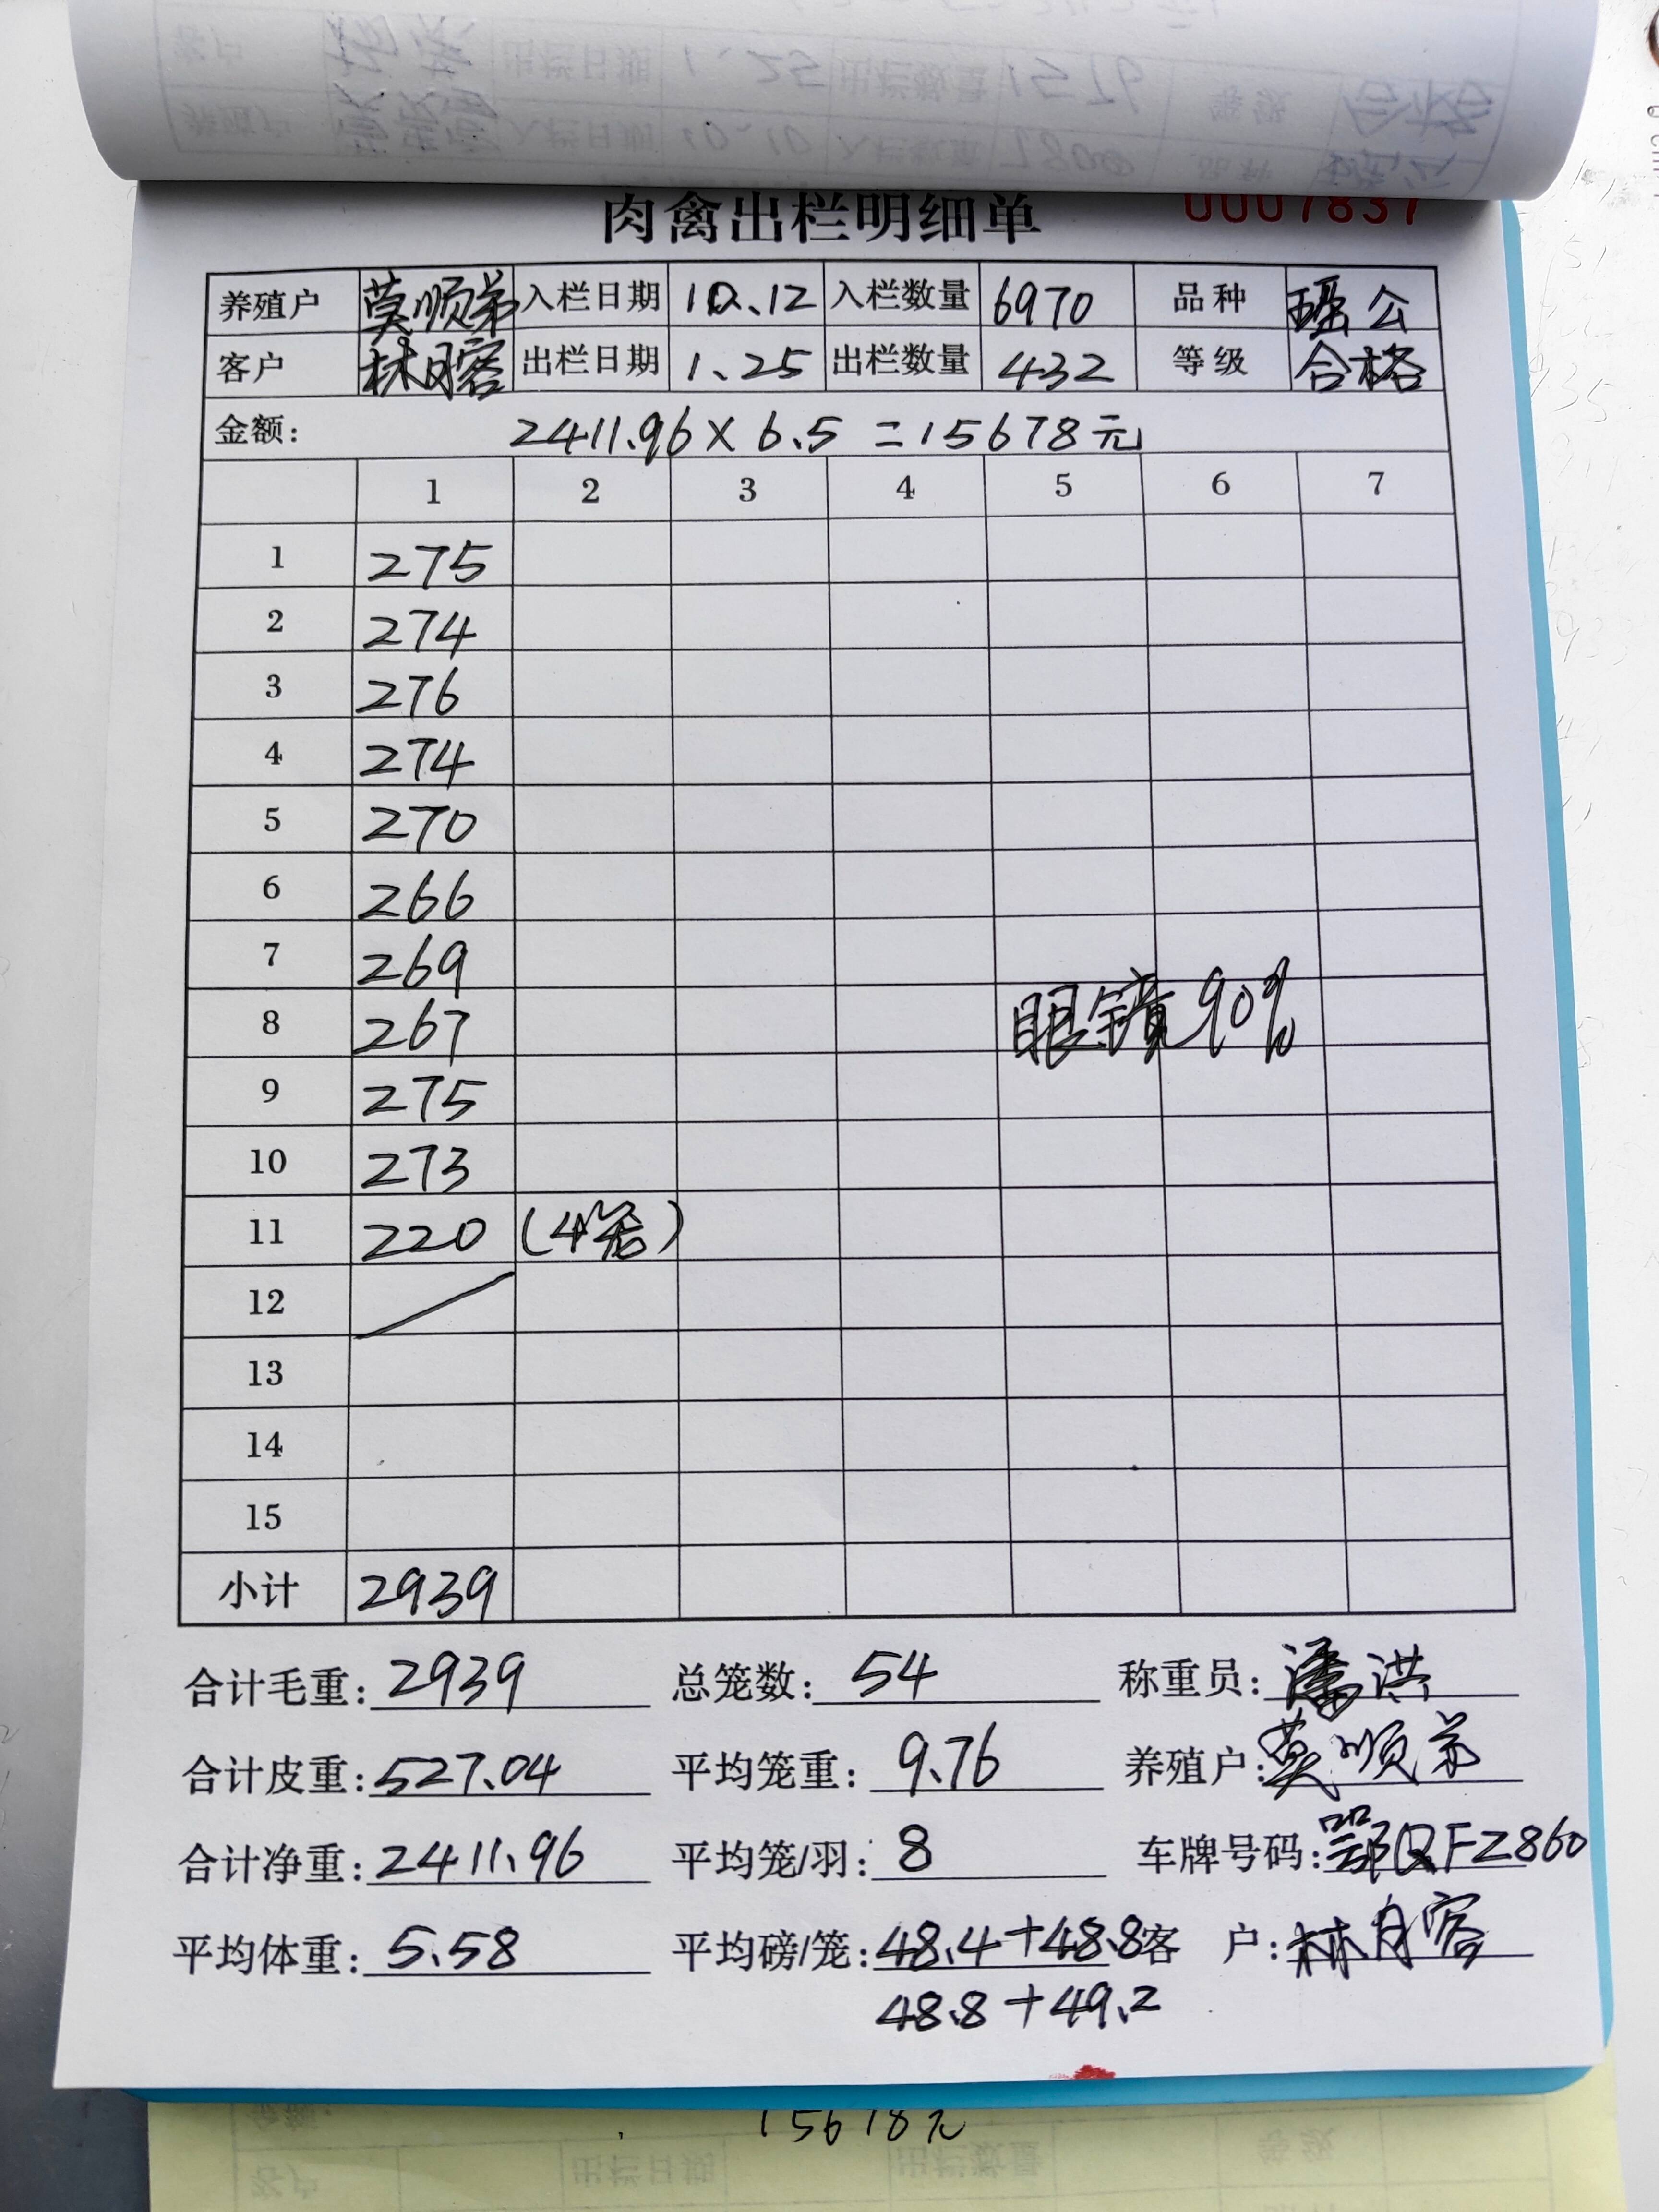 肉禽出栏明细单 0007837
养殖户 莫顺弟 入栏日期 10.12 入栏数量 6970 品种 瑶公
客户 林月容 出栏日期 1.25 出栏数量 432 等级 合格
金额: 2411.96×6.5=15678元
1 2 3 4 5 6 7
1 275
2 274
3 276
4 274
5 270
6 266
7 269
8 267 眼镜90%
9 275
10 273
11 220 (4笼)
12
13
14
15
小计 2939
合计毛重: 2939 总笼数: 54 称重员: 潘洪
合计皮重: 527.04 平均笼重: 9.76 养殖户: 莫顺弟
合计净重: 2411.96 平均笼/羽: 8 车牌号码: 鄂QFZ860
平均体重: 5.58 平均磅/笼: 48.4+48.8 客 户: 林月容
48.8+49.2
15678元